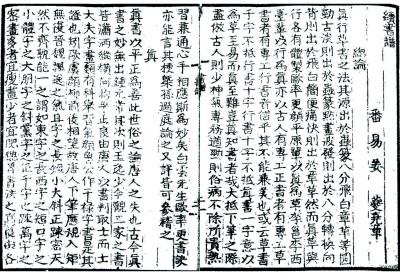 續書譜
番易姜 夔堯章
總論
真行草書之法其源出於蟲篆八分飛白章草等圓
勁古淡則出於蟲篆點畫波發則出於八分轉換向
背則出於飛白簡便痛快則出於章草然而真草與
行各有體製歐陽率更顏平原輩以真為草李邕李西
臺輩以行為真亦以古人有專工正書者有專工草
書者有專工行書者信乎其不能兼美也或云草書
千字不抵行書十字行書十字不如真書一字意以
為草至易而真至難豈真知書者哉大抵下筆之際
盡倣古人則少神氣專務遒勁則俗病不除所貴熟
習兼通心手相應斯為妙矣白雲先生歐陽率更書訣
亦能言其梗槩孫過庭論之又詳皆可參稽之
真
真書以平正為善此世俗之論唐人之失也古今真
書之妙無出鍾元常其次則王逸少今觀二家之書
皆瀟灑縱橫何拘平正良由唐人以書判取士而士
大夫字書類有科舉習氣顏魯公作干祿字書是其
證也矧歐虞顏柳前後相望故唐人下筆應規入矩
無復晉魏飄逸之氣且字之長短大小斜正疎密天
然不齊孰能一之謂如東字之長西字之短口字之
小體字之大朋字之斜黨字之正千字之疎萬字之
密畫多者宜瘦畫少者宜肥魏晉書法之高良由各